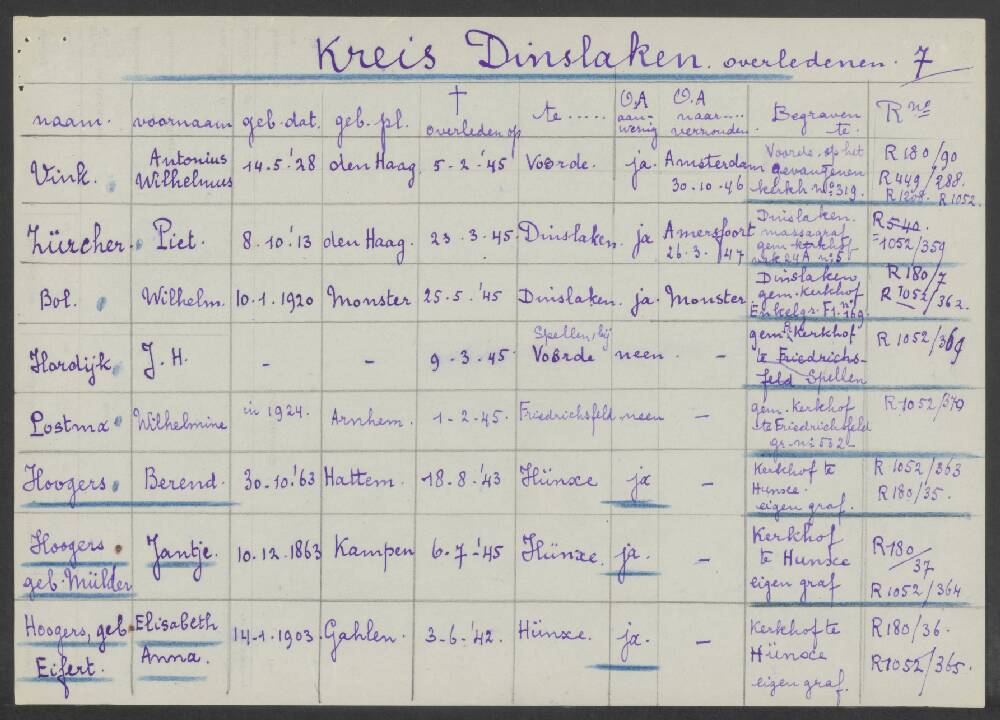 Kreis Dinslaken. overledenen. 7
naam. voornaam geb. dat. geb. pl. † overleden op te ...... O.A aan-wezig O.A naar.... verzonden. Begraven te. R no
Vink. Antonius Wilhelmus 14.5.'28 den Haag 5-2-'45 Voorde. ja. Amsterdam 30.10.46 Voorde, op het gevangenen kerkh. no. 319. R 180/90 R 449/288. R 1208. R 1052.
Zürcher. Piet. 8.10.'13 den Haag. 23.3.45. Dinslaken. ja Amersfoort 26.3./47 Dinslaken. massagraf gem. kerkhof vak 24A no. 5 R 540. =1052/359
Bol. Wilhelm. 10.1.1920 Monster 25.5.'45 Dinslaken. ja. Monster. Dinslaken gem. Kerkhof Enkelgr. F1. no. 169. R 180/7 R 1052/362.
Hardijk. J. H. - - 9.3.45. Spellen, bij Voorde neen. - gem. Kerkhof te Friedrichs-feld Spellen R 1052/369
Postma. Wilhelmine in 1924. Arnhem. 1-2-45. Friedrichsfeld neen - gem. Kerkhof te Friedrichsfeld gr. no. 532- R 1052/379
Hoogers. Berend. 30.10.'63 Hattem. 18.8.'43 Hünxe ja - Kerkhof te Hunxe. eigen graf. R 1052/363 R 180/35.
Hoogers. geb. Mülder Jantje. 10.12.1863 Kampen 6.7.'45 Hünxe. ja. - Kerkhof te Hunxe eigen graf R 180/37 R 1052/364
Hoogers, geb. Eifert. Elisabeth Anna. 14.1.1903. Gahlen. 3-6-'42. Hünxe. ja. - Kerkhof te Hünxe eigen graf. R 180/36. R 1052/365.